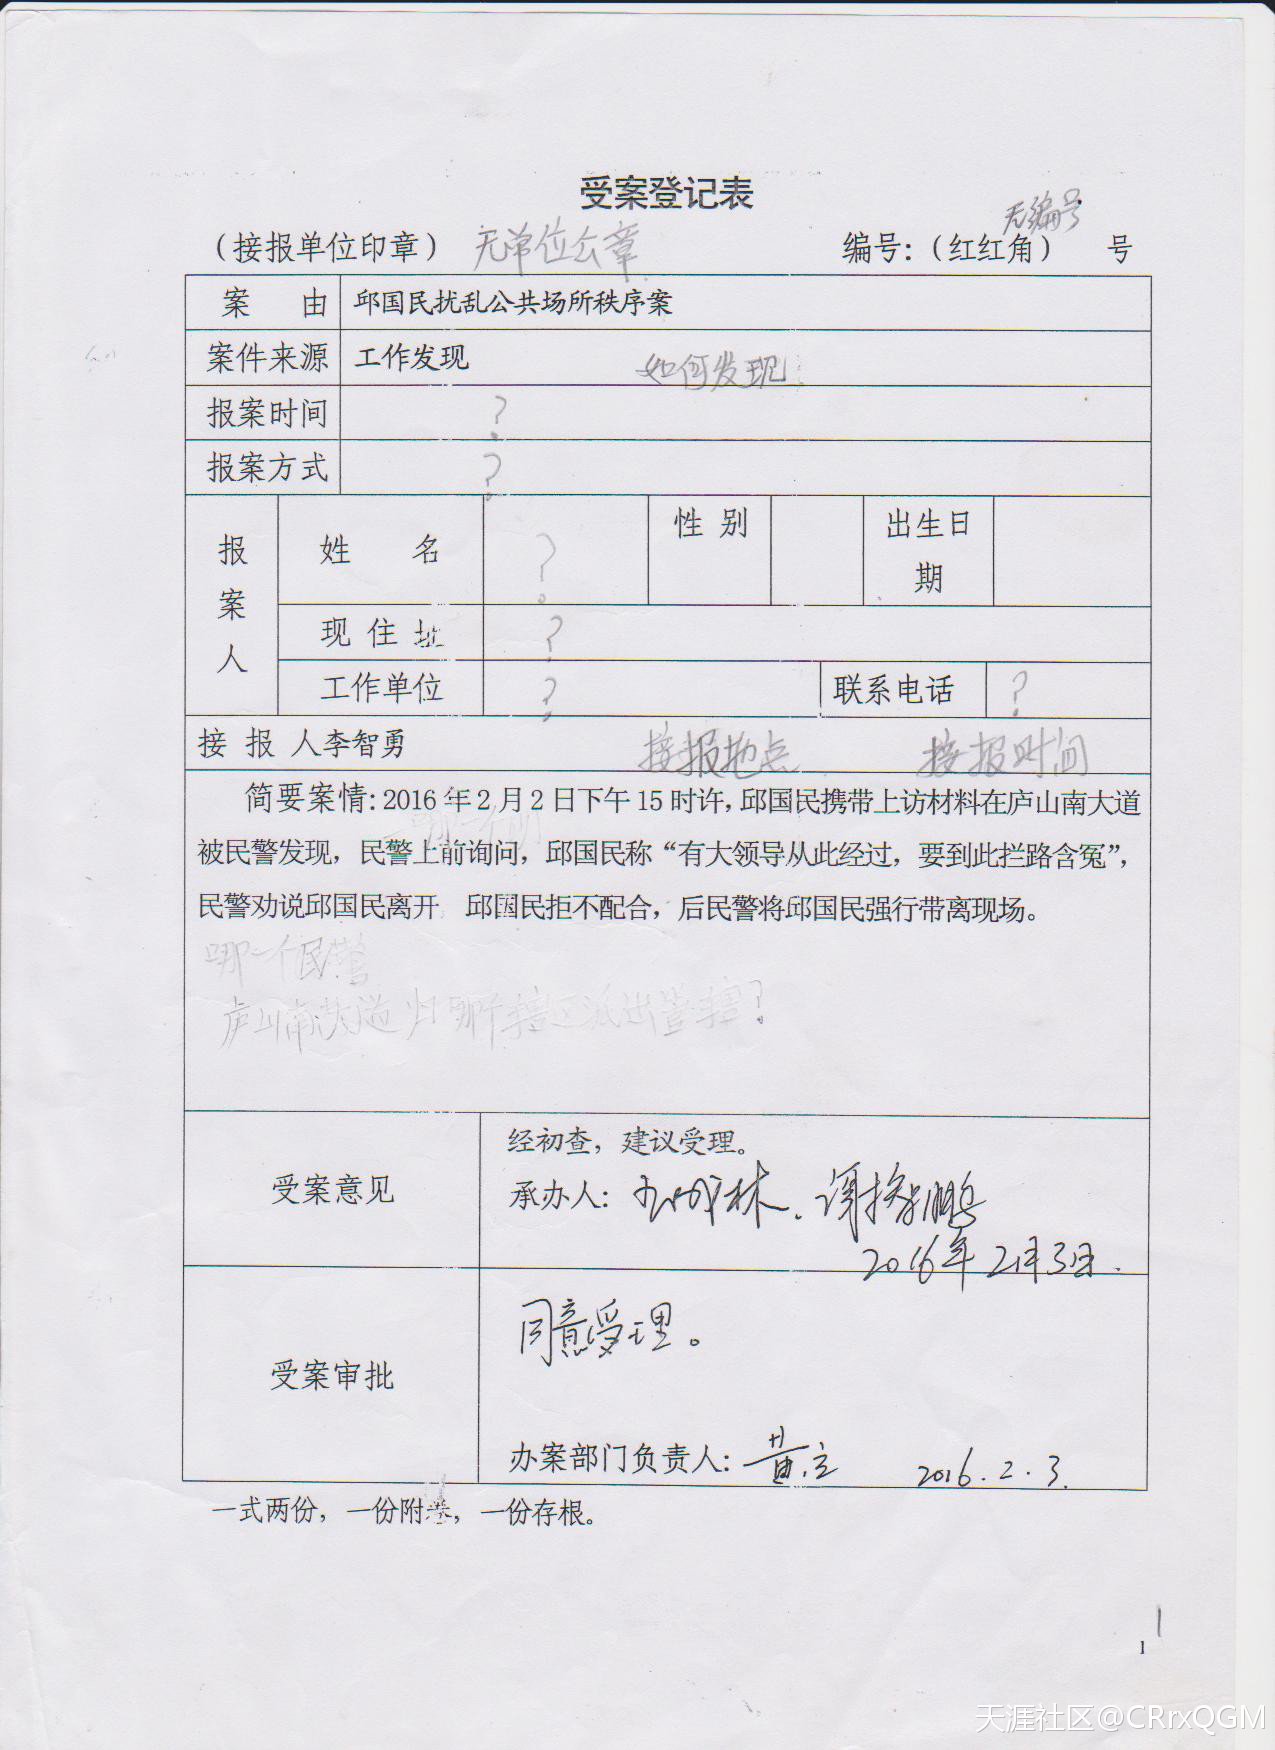 受案登记表
无编号
（接报单位印章） 无单位公章 编号:（红红角） 号
案 由 邱国民扰乱公共场所秩序案
案件来源 工作发现 如何发现
报案时间 ?
报案方式 ?
报案人 姓 名 ? 性 别 出生日期
现 住 址 ?
工作单位 ? 联系电话 ?
接 报 人李智勇 接报地点 接报时间
简要案情: 2016 年 2 月 2 日下午 15 时许，邱国民携带上访材料在庐山南大道
被民警发现，民警上前询问，邱国民称“有大领导从此经过，要到此拦路含冤”，
民警劝说邱国民离开 邱国民拒不配合，后民警将邱国民强行带离现场。
哪一个民警
庐山南大道归哪个辖区派出管辖?
受案意见 经初查，建议受理。
承办人:
2016年2月3日.
受案审批 同意受理。
办案部门负责人: 黄立 2016.2.3.
一式两份，一份附卷，一份存根。
1
1
天涯社区@CRrxQGM